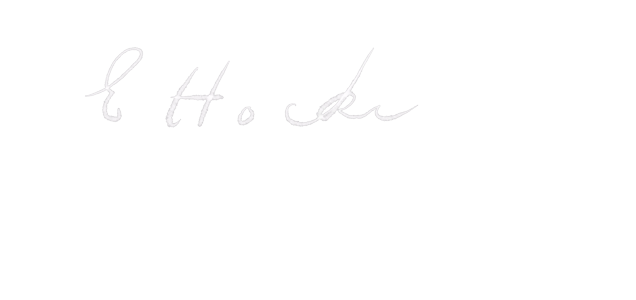 E Hock